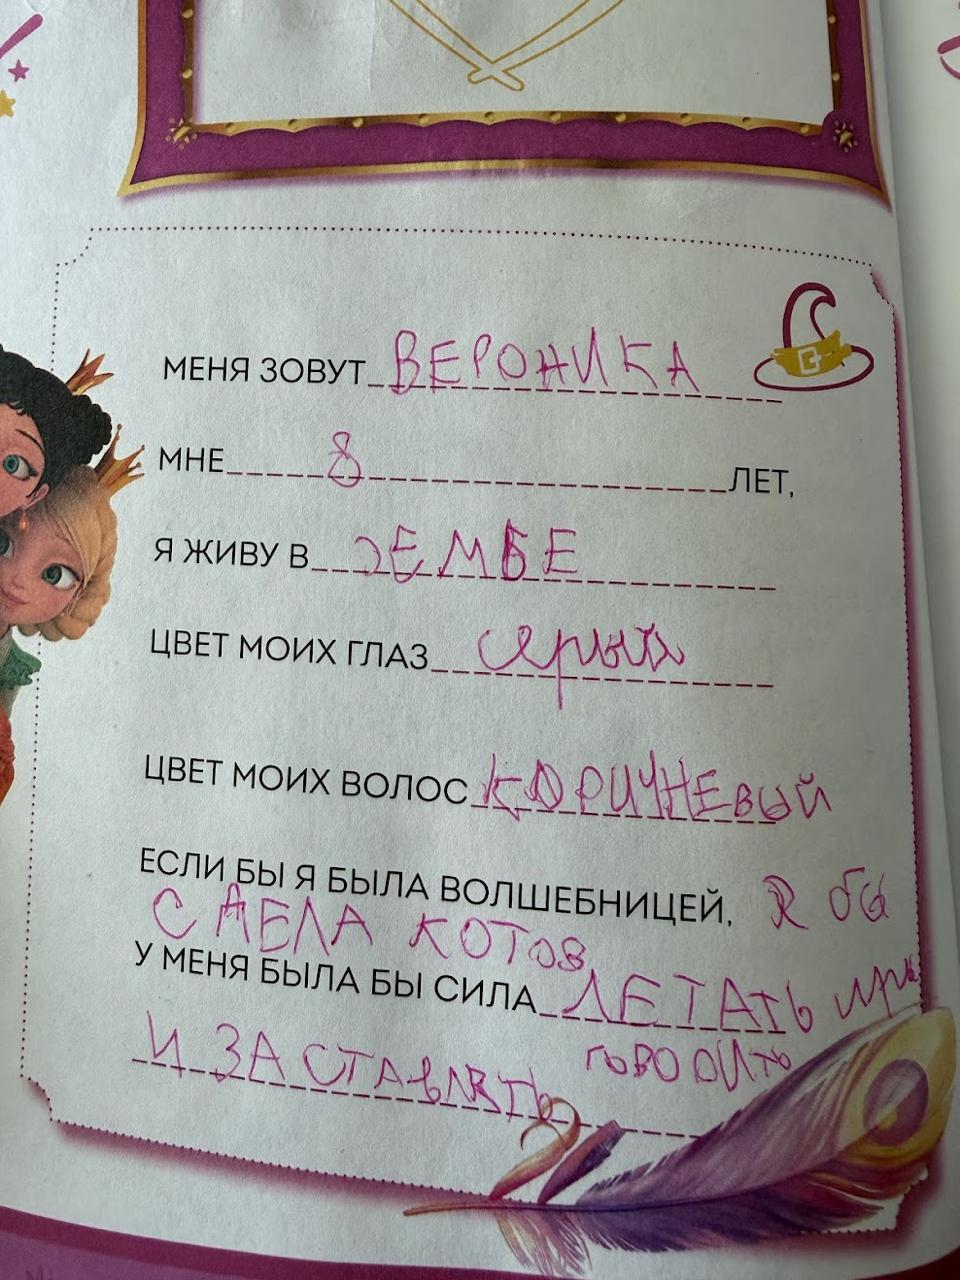 МЕНЯ ЗОВУТ ВЕРОНИКА
МНЕ 8 ЛЕТ,
Я ЖИВУ В ЗЕМБЕ
ЦВЕТ МОИХ ГЛАЗ серый
ЦВЕТ МОИХ ВОЛОС КОРИЧНЕвый
ЕСЛИ БЫ Я БЫЛА ВОЛШЕБНИЦЕЙ, Я бы
СДЕЛА КОТОВ
У МЕНЯ БЫЛА БЫ СИЛА ЛЕТАТЬ
И ЗАСТАВЛЯТЬ ГОВООИТЬ